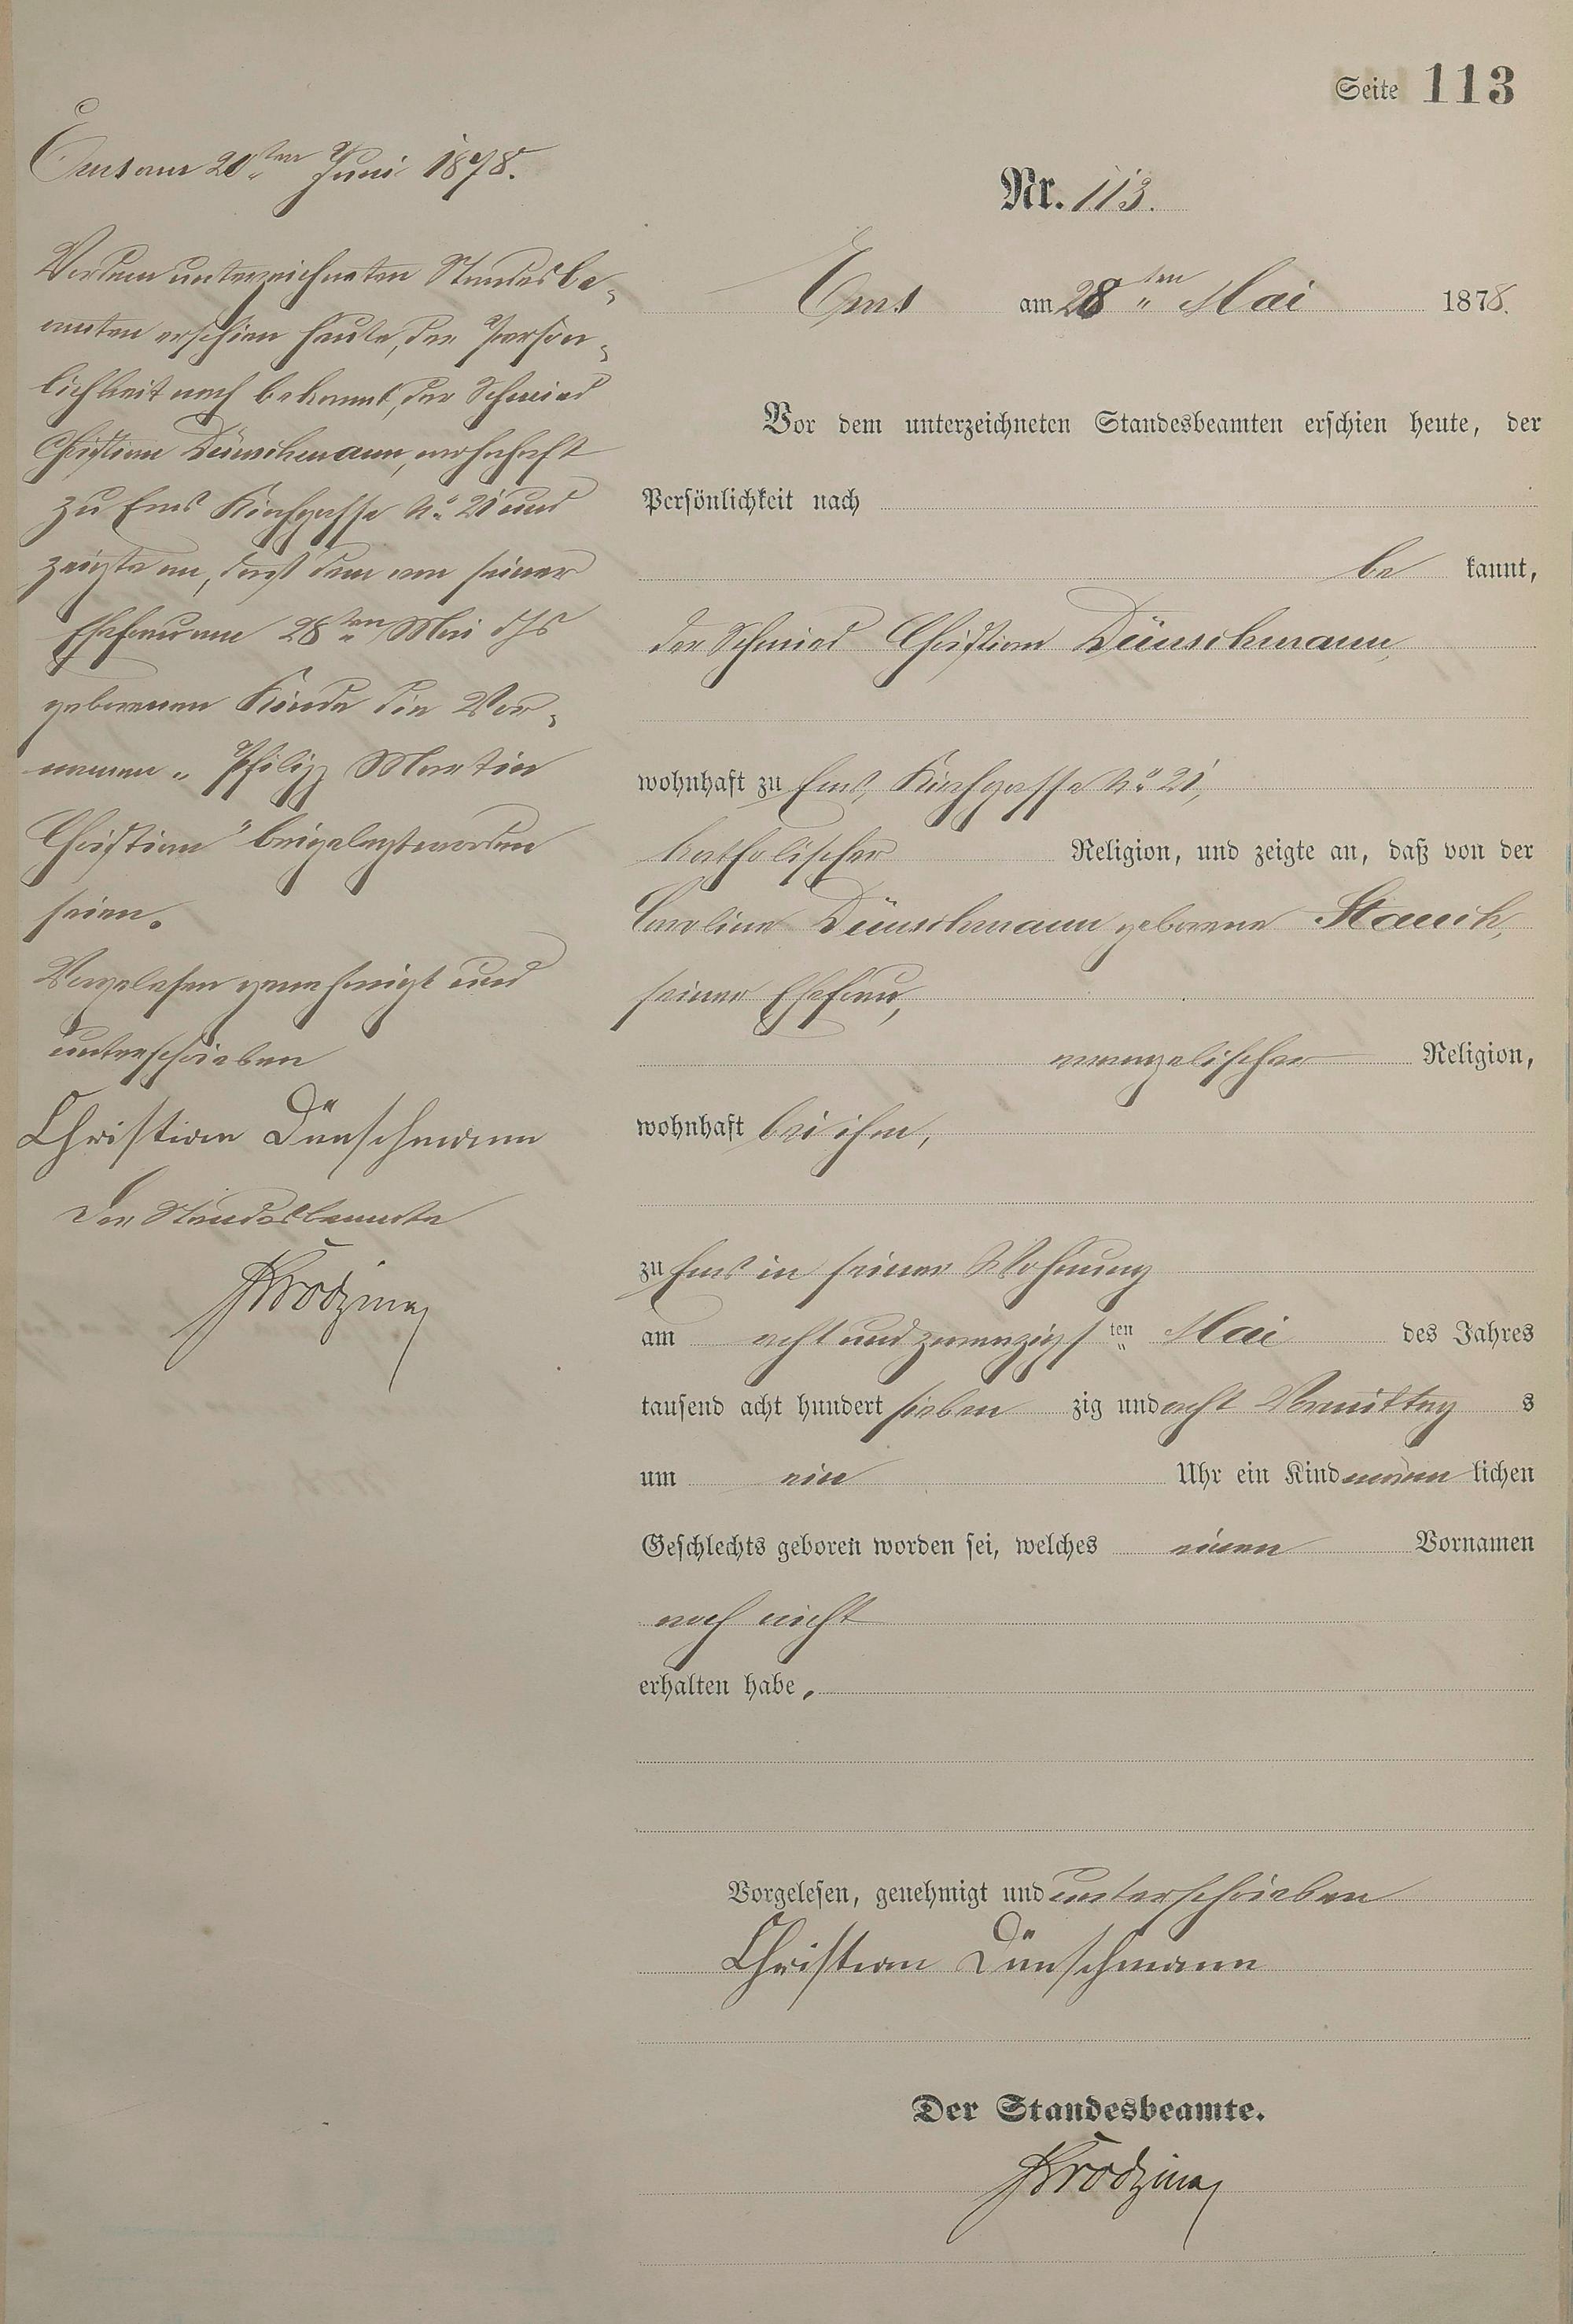 Seite 113
Ems am 20ten Juni 1878.
Vor dem unterzeichneten Standesbe-
amten erschien heute, der Persön-
lichkeit nach bekannt, der Schmied
Christian Dünschmann, wohnhaft
zu Ems Kirchgasse No 21 und
zeigte an, daß dem von seiner
Ehefrau am 28ten Mai ds Js
geborenen Kinde die Vor-
namen „Philipp Martin
Christian" beigelegt worden
seien.
Vorgelesen genehmigt und
unterschrieben
Christian Dünschmann
Der Standesbeamte
Nr. 113.
Ems am 28ten Mai 1878.
Vor dem unterzeichneten Standesbeamten erschien heute, der
Persönlichkeit nach
be kannt,
der Schmied Christian Dünschmann,
wohnhaft zu Ems, Kirchgasse No 21,
katholischer Religion, und zeigte an, daß von der
Caroline Dünschmann geborene Stauch,
seiner Ehefrau,
evangelischer Religion,
wohnhaft bei ihm,
zu Ems in seiner Wohnung
am acht und zwanzigsten Mai des Jahres
tausend acht hundert sieben zig und acht Vormittag s
um ein Uhr ein Kind männ lichen
Geschlechts geboren worden sei, welches einen Vornamen
noch nicht
erhalten habe.
Vorgelesen, genehmigt und unterschrieben
Christian Dünschmann
Der Standesbeamte.